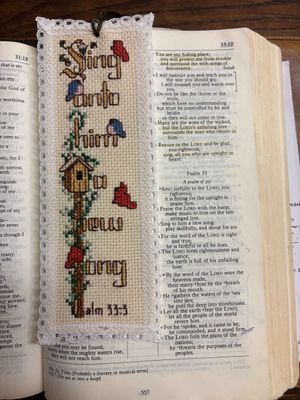 31:18
33:10
Sing
unto
him
a
new
song
alm 33:3
of God
You are my hiding place;
you will protect me from trouble
and surround me with songs of
deliverance. Selah
I will instruct you and teach you in
the way you should go;
I will counsel you and watch over
you.
Do not be like the horse or the
mule,
which have no understanding
but must be controlled by bit and
bridle
or they will not come to you.
Many are the woes of the wicked,
but the LORD's unfailing love
surrounds the man who trusts in
him.
Rejoice in the LORD and be glad,
you righteous;
sing, all you who are upright in
heart!
Psalm 33
Sing joyfully to the LORD, you
righteous;
it is fitting for the upright to
praise him.
Praise the LORD with the harp;
make music to him on the ten-
stringed lyre.
Sing to him a new song;
play skillfully, and shout for joy.
For the word of the LORD is right
and true;
he is faithful in all he does.
The LORD loves righteousness and
justice;
the earth is full of his unfailing
love.
By the word of the LORD were the
heavens made,
their starry host by the breath
of his mouth.
He gathers the waters of the sea
into jars;
he puts the deep into storehouses.
Let all the earth fear the LORD;
let all the people of the world
revere him.
For he spoke, and it came to be;
he commanded, and it stood firm.
The LORD foils the plans of the
nations;
he thwarts the purposes of the
peoples.
you may be found;
when the mighty waters rise,
they will not reach him.
Title: (Probably a literary or musical term)
557